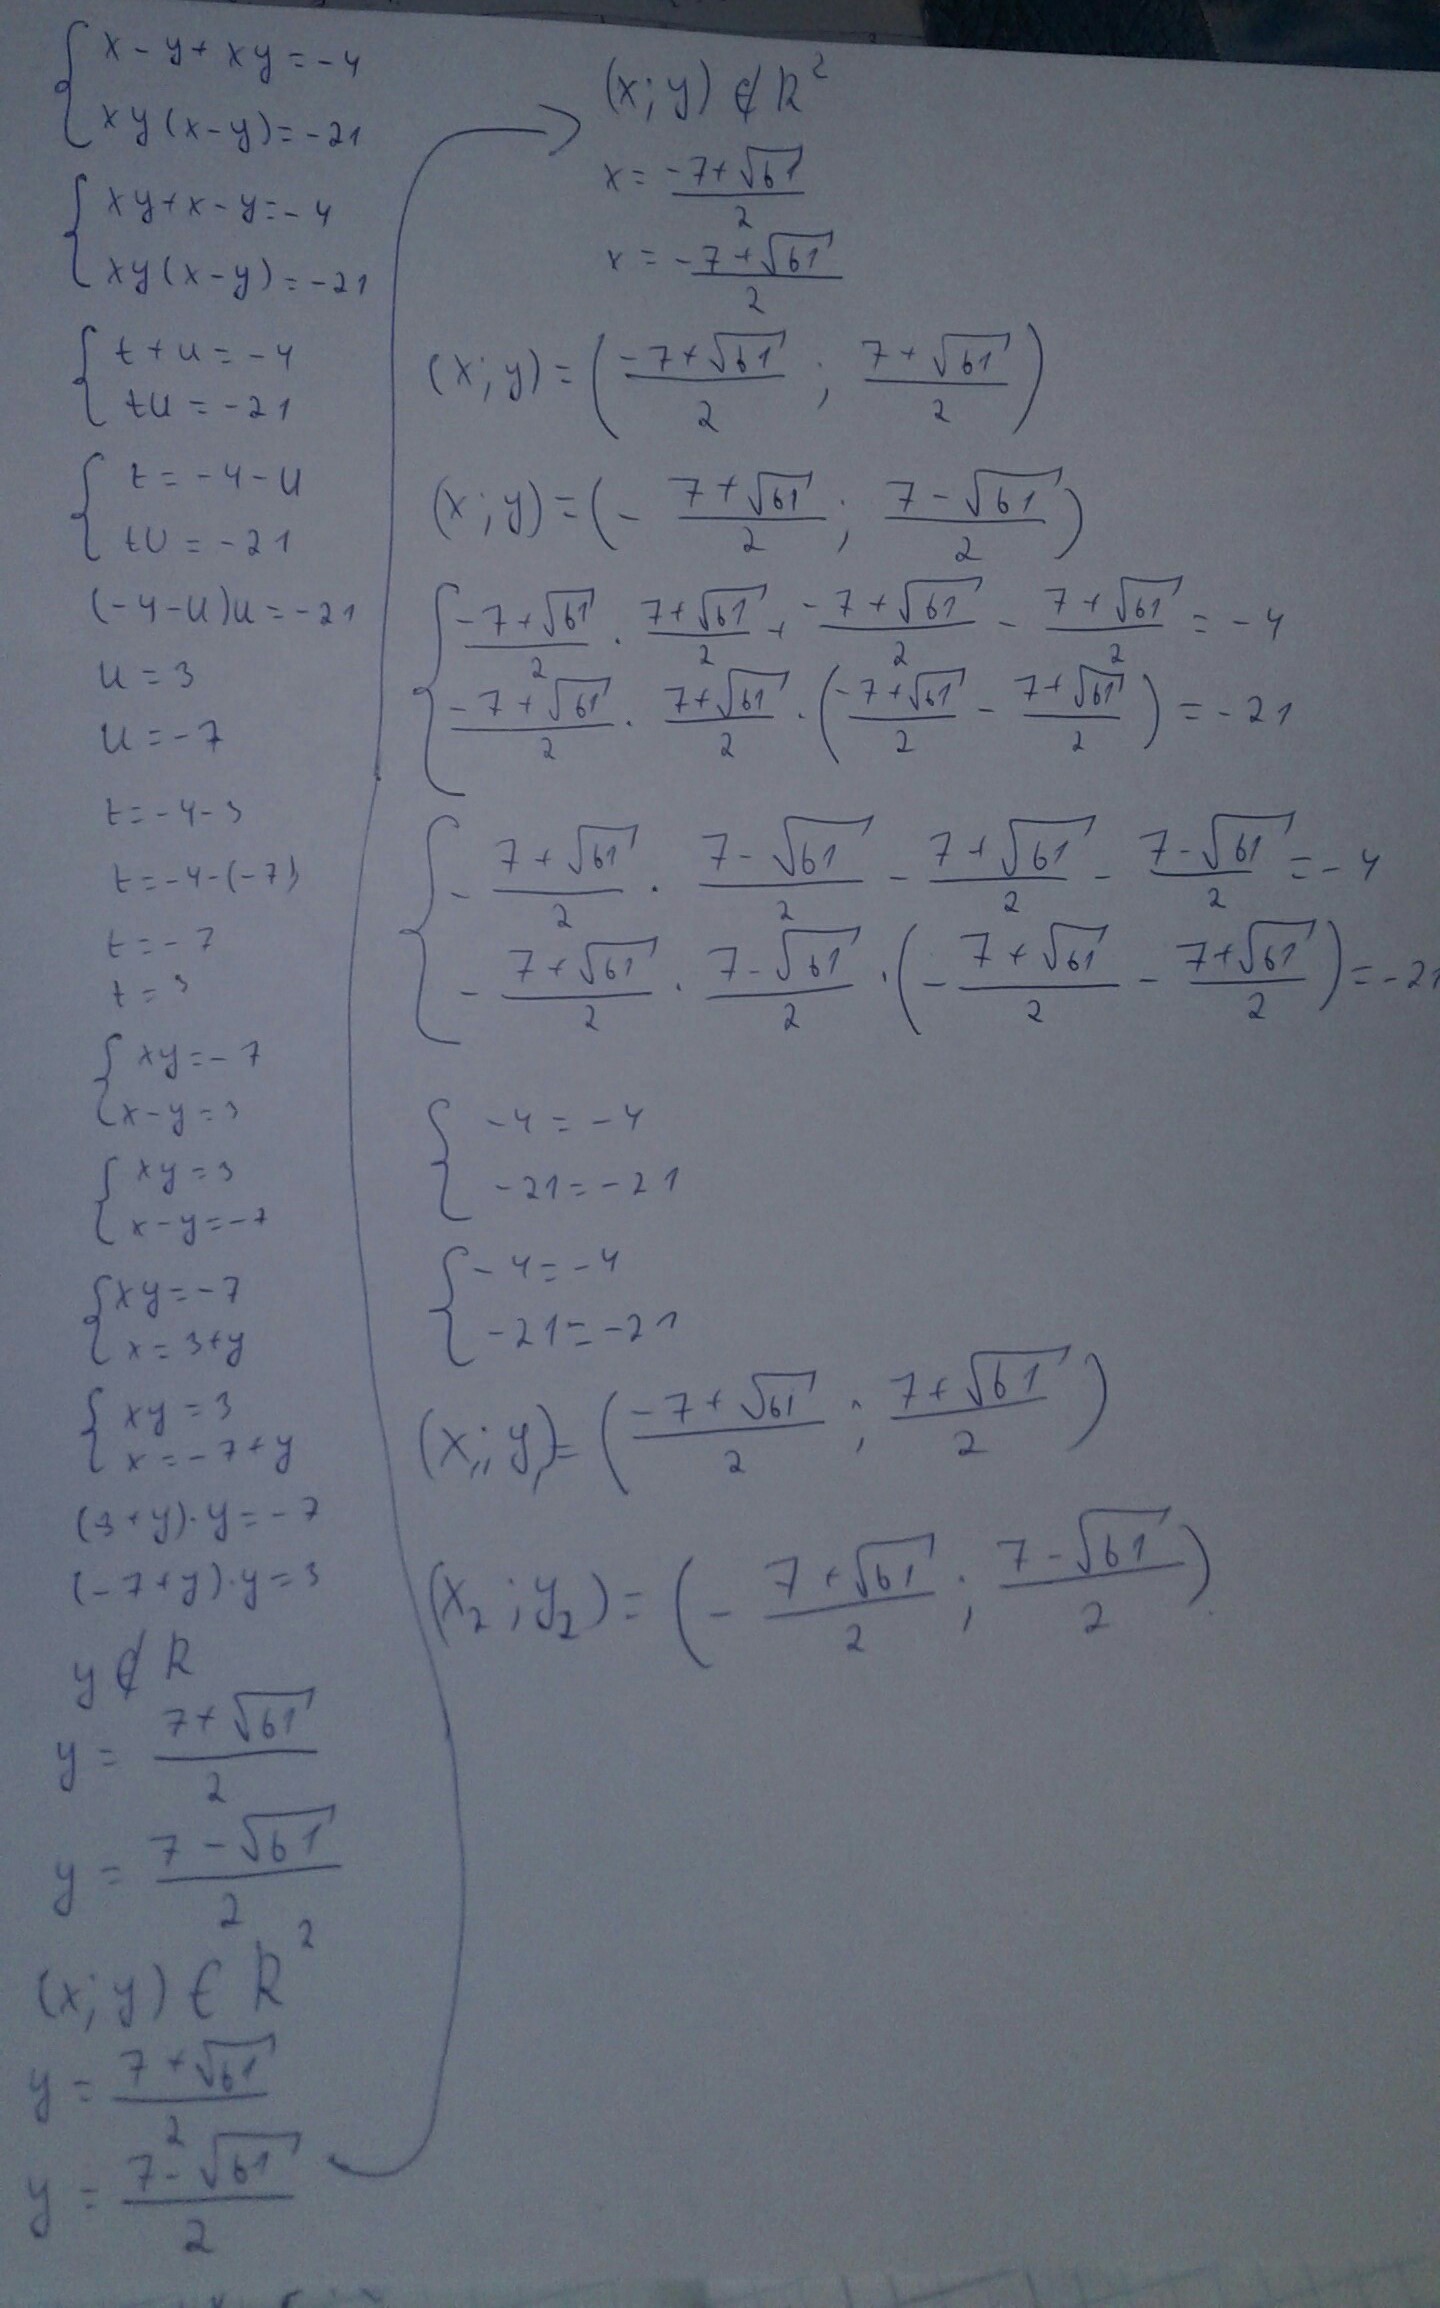 { x - y + xy = -4
xy(x-y) = -21
{ xy + x - y = -4
xy(x-y) = -21
{ t + u = -4
tu = -21
{ t = -4-u
tu = -21
(-4-u)u = -21
u = 3
u = -7
t = -4-3
t = -4-(-7)
t = -7
t = 3
{ xy = -7
x-y = 3
{ xy = 3
x-y = -7
{ xy = -7
x = 3+y
{ xy = 3
x = -7+y
(3+y)·y = -7
(-7+y)·y = 3
y ∉ R
y = (7+√61)/2
y = (7-√61)/2
(x; y) ∈ R²
y = (7+√61)/2
y = (7-√61)/2
(x; y) ∉ R²
x = (-7+√61)/2
x = -(7+√61)/2
(x; y) = ((-7+√61)/2 ; (7+√61)/2)
(x; y) = (-(7+√61)/2 ; (7-√61)/2)
{ (-7+√61)/2 · (7+√61)/2 + (-7+√61)/2 - (7+√61)/2 = -4
(-7+√61)/2 · (7+√61)/2 · ((-7+√61)/2 - (7+√61)/2) = -21
{ -(7+√61)/2 · (7-√61)/2 - (7+√61)/2 - (7-√61)/2 = -4
-(7+√61)/2 · (7-√61)/2 · (-(7+√61)/2 - (7+√61)/2) = -21
{ -4 = -4
-21 = -21
{ -4 = -4
-21 = -21
(x₁; y₁) = ((-7+√61)/2 ; (7+√61)/2)
(x₂; y₂) = (-(7+√61)/2 ; (7-√61)/2)